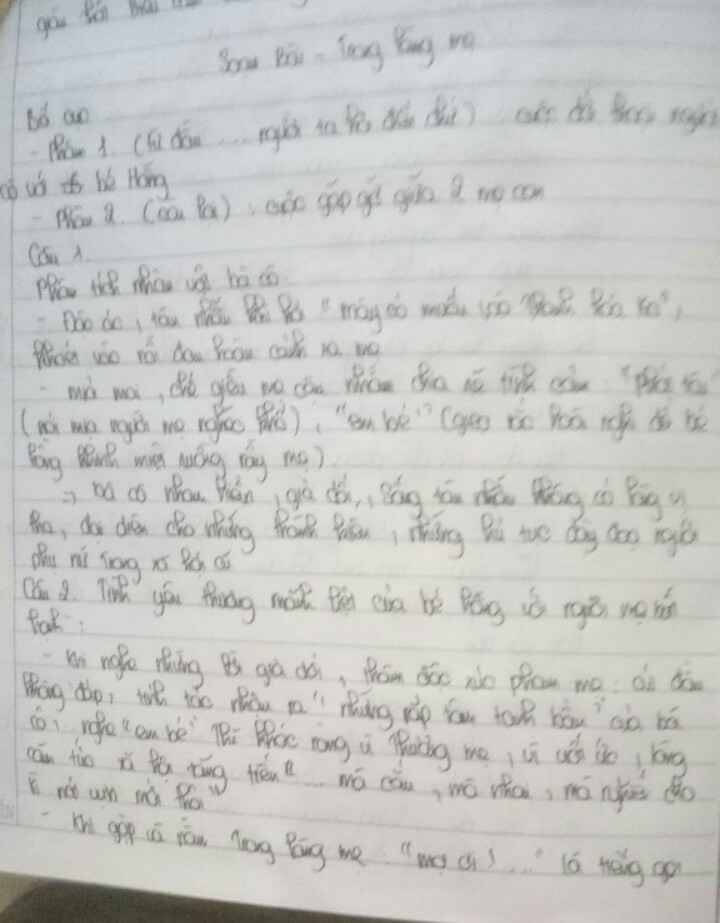 Soạn Bài - Trong lòng mẹ
Bố cục
- Phần 1. (từ đầu ... người ta hỏi đến chứ) cuộc đối thoại người
cô với bé Hồng
- Phần 2. (còn lại), cuộc gặp gỡ giữa 2 mẹ con
Câu 1.
Phân tích nhân vật bà cô
- Độc ác, tàu nhẫn khi hỏi "mày có muốn vào Thanh Hóa ko",
khoét vào nỗi đau hoàn cảnh xa mẹ
- mỉa mai, chế giễu mà còn nhằm chia rẽ tình cảm "phát tài"
(nói mỉa người mẹ nghèo khổ), "em bé" (gieo rắc hoài nghi để bé
Hồng khinh miệt ruồng rẫy mẹ)
→ bà cô nham hiểm, giả dối, sống tàn nhẫn không có lòng vị
tha, đại diện cho những thành kiến, những hủ tục đày đọa người
phụ nữ trong xã hội cũ
Câu 2. Tình yêu thương mãnh liệt của bé Hồng với người mẹ bất
hạnh:
- khi nghe những lời giả dối, thâm độc xúc phạm mẹ: cúi đầu
không đáp, tinh tác nhận ra "những rắp tâm tanh bẩn" của bà
cô, nghe "em bé" thì khóc ròng vì thương mẹ, vì uất ức, lòng
căm tức xã hội tăng tiến "... mà cắn, mà nhai, mà nghiến cho
kì nát vụn mới thôi"
- Khi gặp và nằm trong lòng mẹ "mợ ơi!..." là tiếng gọi